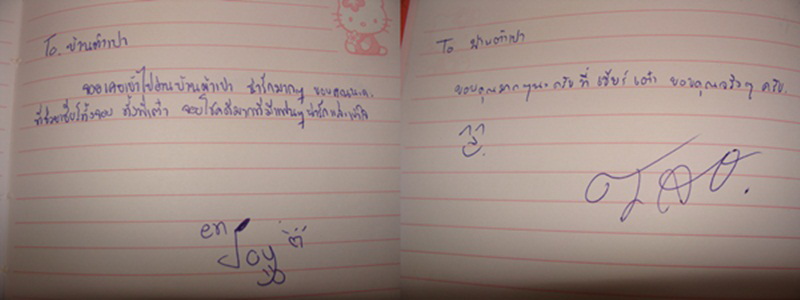 To. บ้านต้าเปา
จอยเคยเข้าไปอ่านบ้านต้าเปา น่ารักมากๆ ขอบคุณนะคะ
ที่ช่วยเชียร์ทั้งจอย ทั้งพี่เต๋า จอยโชคดีมากที่มีแฟนๆ น่ารักและเข้าใจ
enJoy
To บ้านต้าเปา
ขอบคุณมากๆนะครับ ที่เชียร์เต๋า ขอบคุณจริงๆ ครับ.